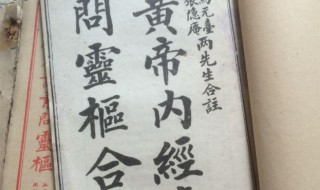 馬元臺
張隱庵
两先生合註
黃帝內經
問靈樞合
問靈樞